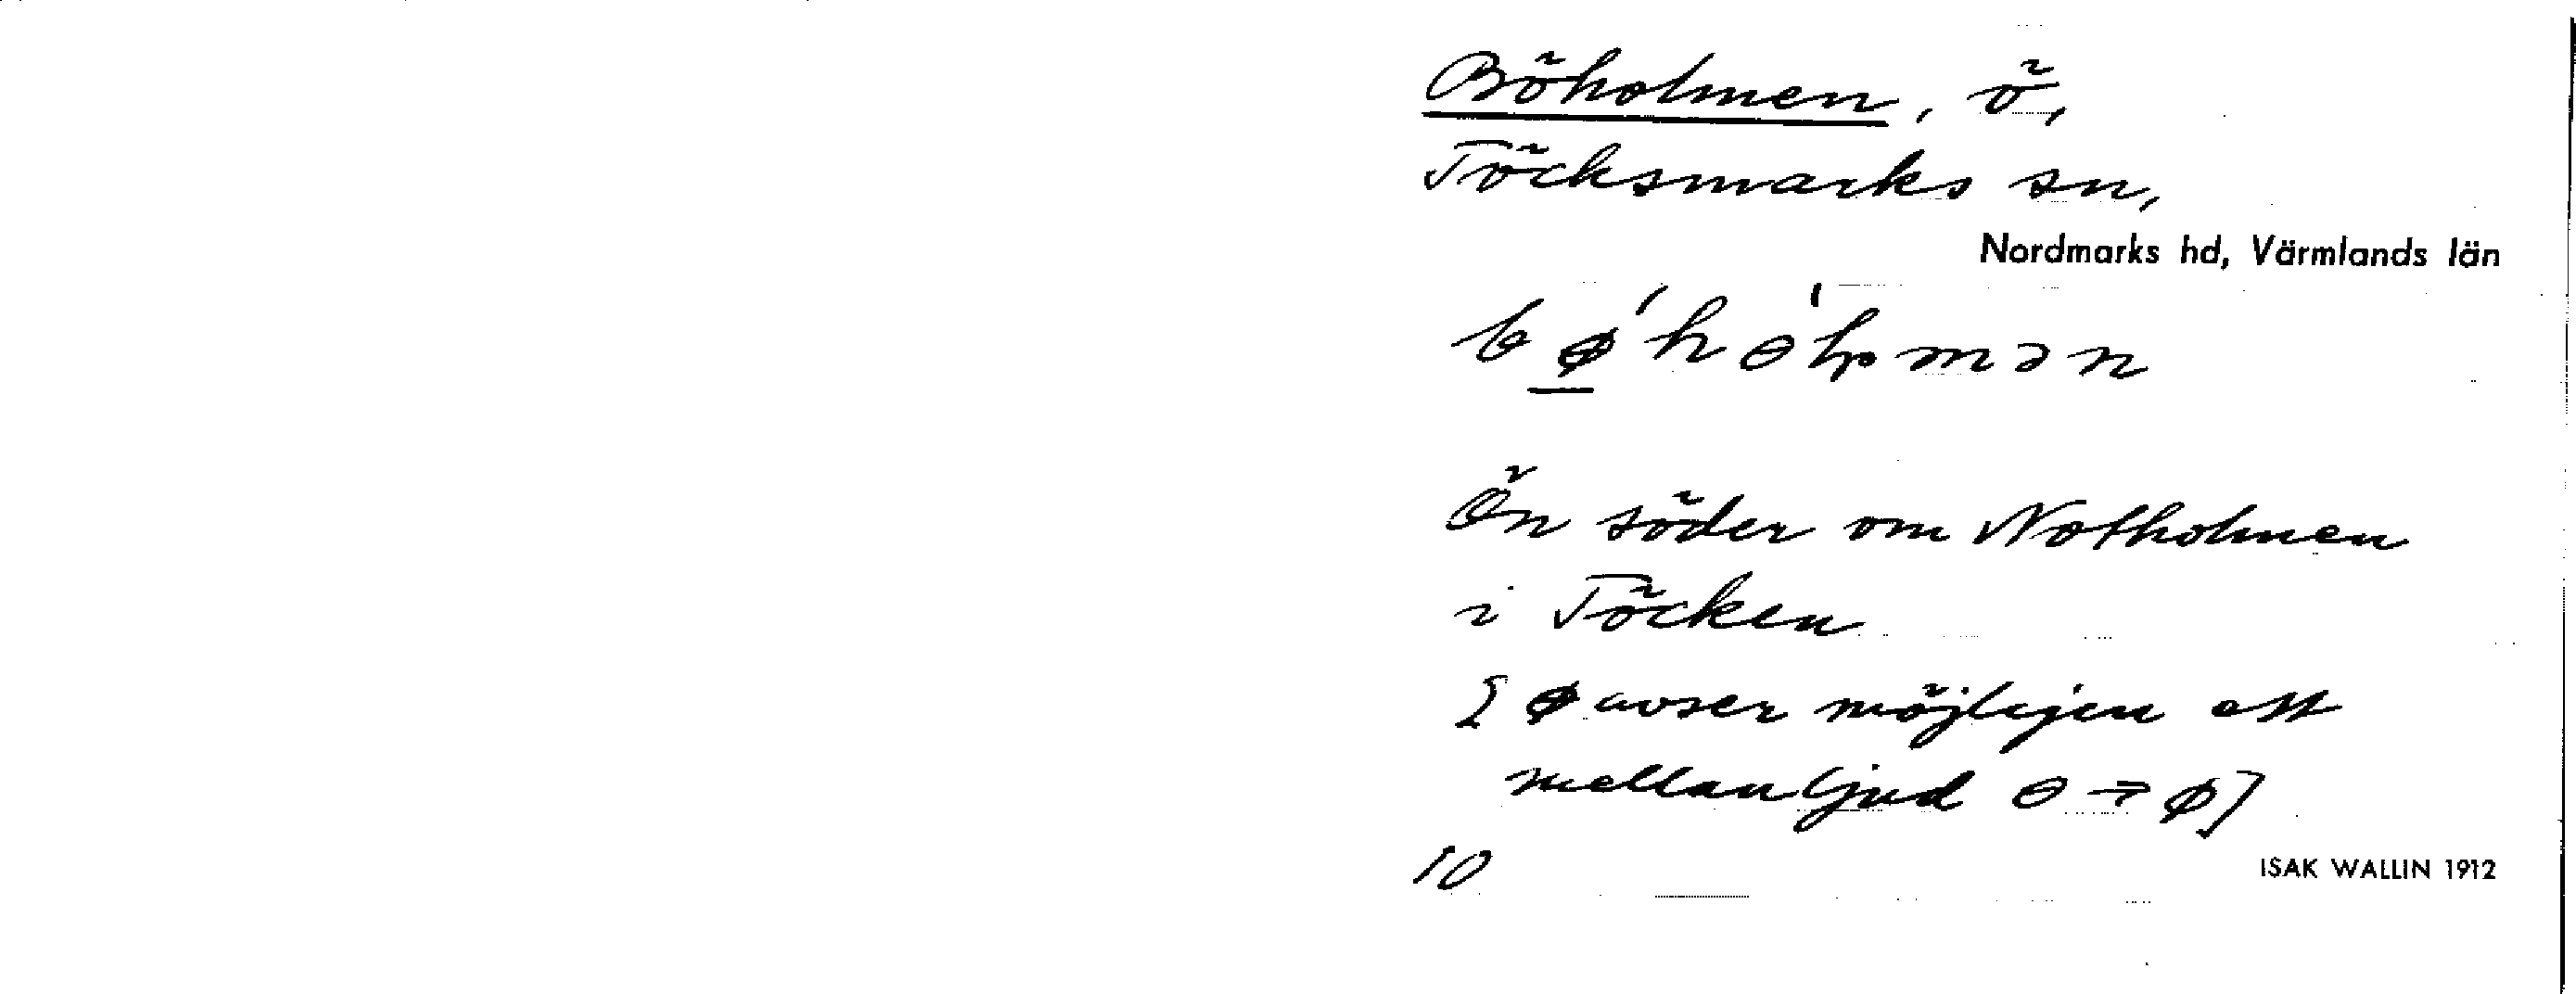 Böholmen, ö,
Töcksmarks sn,
Nordmarks hd, Värmlands län
bø'hɵ'lpmən
Ön söder om Notholmen
i Töcken
[ø avser möjligen ett
mellanljud ɵ → ø]
10
ISAK WALLIN 1912